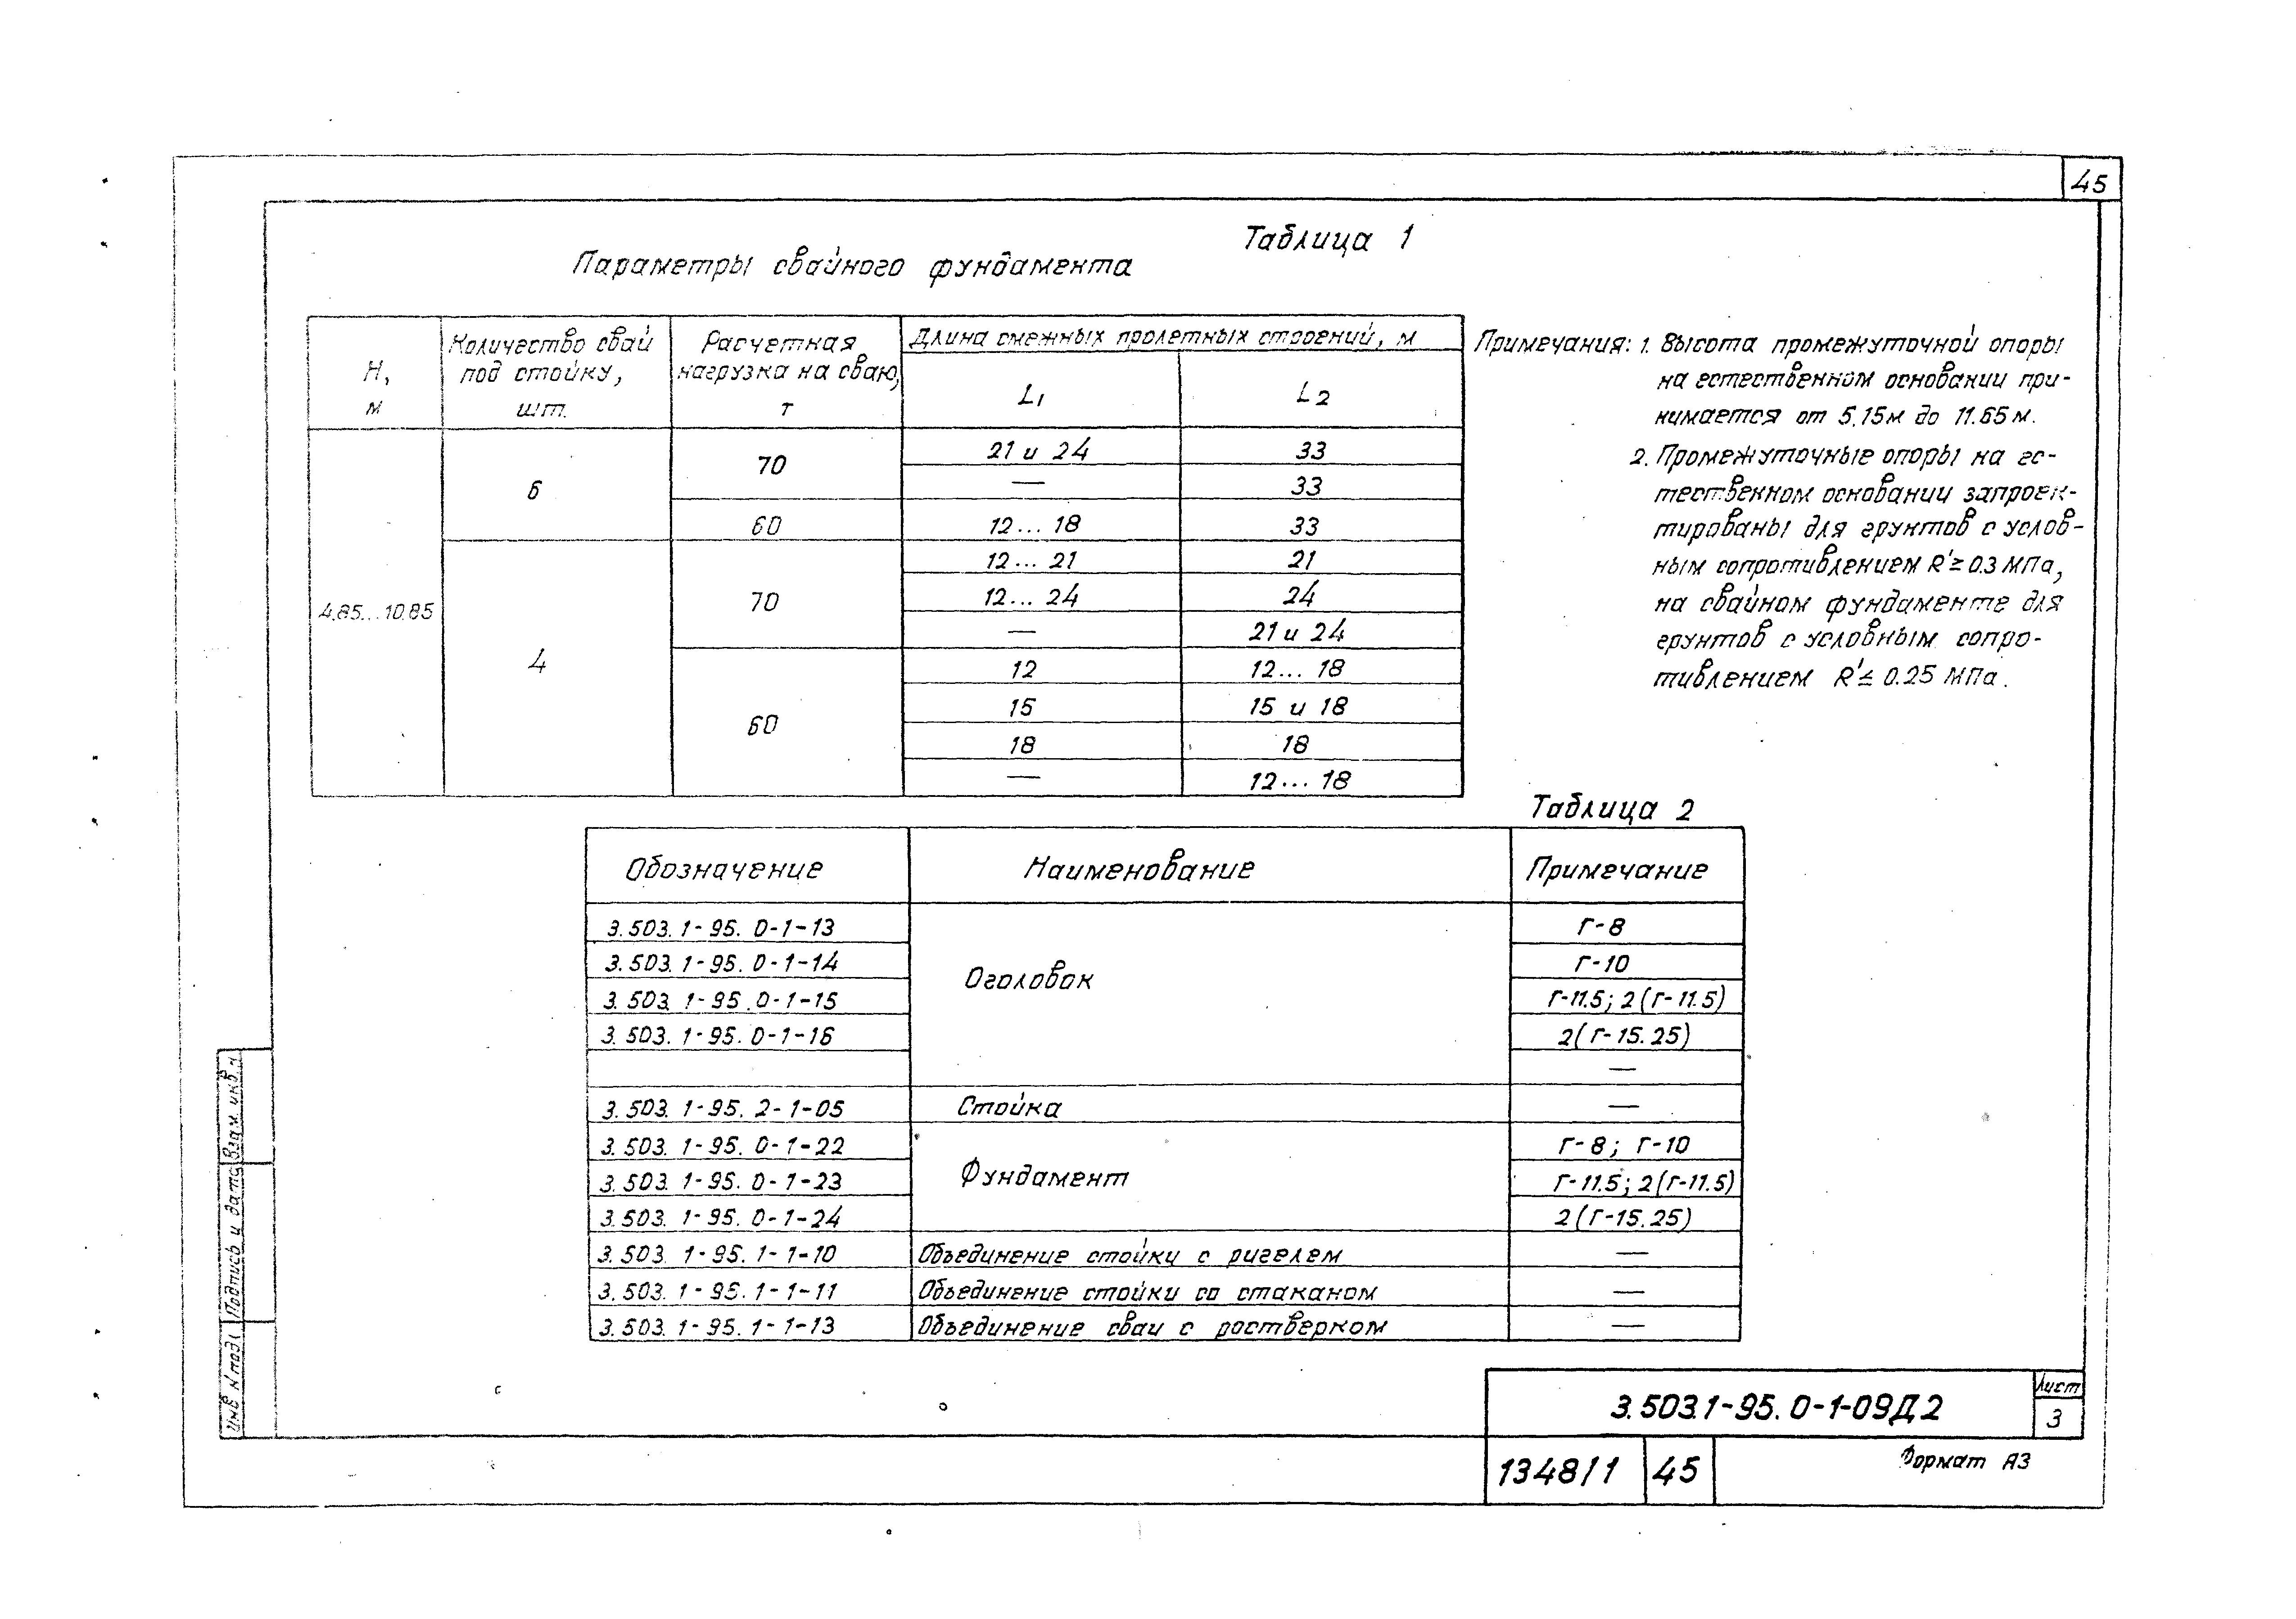 45
Таблица 1
Параметры свайного фундамента
Н, м | Количество свай под стойку, шт. | Расчетная нагрузка на сваю, т | Длина смежных пролетных строений, м
L1 | L2
4.85...10.85 | 6 | 70 | 21 и 24 | 33
— | 33
60 | 12...18 | 33
4 | 70 | 12...21 | 21
12...24 | 24
— | 21 и 24
60 | 12 | 12...18
15 | 15 и 18
18 | 18
— | 12...18
Примечания: 1. Высота промежуточной опоры
на естественном основании при-
нимается от 5.15м до 11.65м.
2. Промежуточные опоры на ес-
тественном основании запроек-
тированы для грунтов с услов-
ным сопротивлением R'≥0.3 МПа,
на свайном фундаменте для
грунтов с условным сопро-
тивлением R'≤ 0.25 МПа.
Таблица 2
Обозначение | Наименование | Примечание
3.503.1-95.0-1-13 | Оголовок | Г-8
3.503.1-95.0-1-14 | Г-10
3.503.1-95.0-1-15 | Г-11.5; 2(Г-11.5)
3.503.1-95.0-1-16 | 2(Г-15.25)
—
3.503.1-95.2-1-05 | Стойка | —
3.503.1-95.0-1-22 | Фундамент | Г-8; Г-10
3.503.1-95.0-1-23 | Г-11.5; 2(Г-11.5)
3.503.1-95.0-1-24 | 2(Г-15.25)
3.503.1-95.1-1-10 | Объединение стойки с ригелем | —
3.503.1-95.1-1-11 | Объединение стойки со стаканом | —
3.503.1-95.1-1-13 | Объединение сваи с ростверком | —
Взам. инв. N
Подпись и дата
Инв N подл
3.503.1-95.0-1-09Д2
Лист
3
1348/1 45
Формат А3